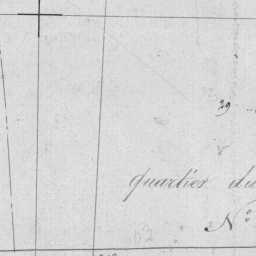 29
quartier du
N°